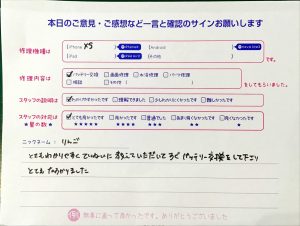 本日のご意見・ご感想など一言と確認のサインお願いします
修理機種は
iPhone XS
Android
iPad
その他
です。
修理内容は
バッテリー交換 画面修理 水没修理 パーツ修理
相談 その他
をしてもらいました。
スタッフの説明は
わかりやすかったです 理解できました 少しわかりにくかったです 難しかったです
スタッフの対応は
★星の数★
とても良かったです 良かったです 普通でした あまり良くなかったです 良くなかったです
★★★★★ ★★★★ ★★★ ★★ ★
ニックネーム: りんご
とてもわかりやすく ていねいに 教えていただいて すぐ バッテリー交換をして下さり
とても たすかりました
無事に直って良かったです。ありがとうございました